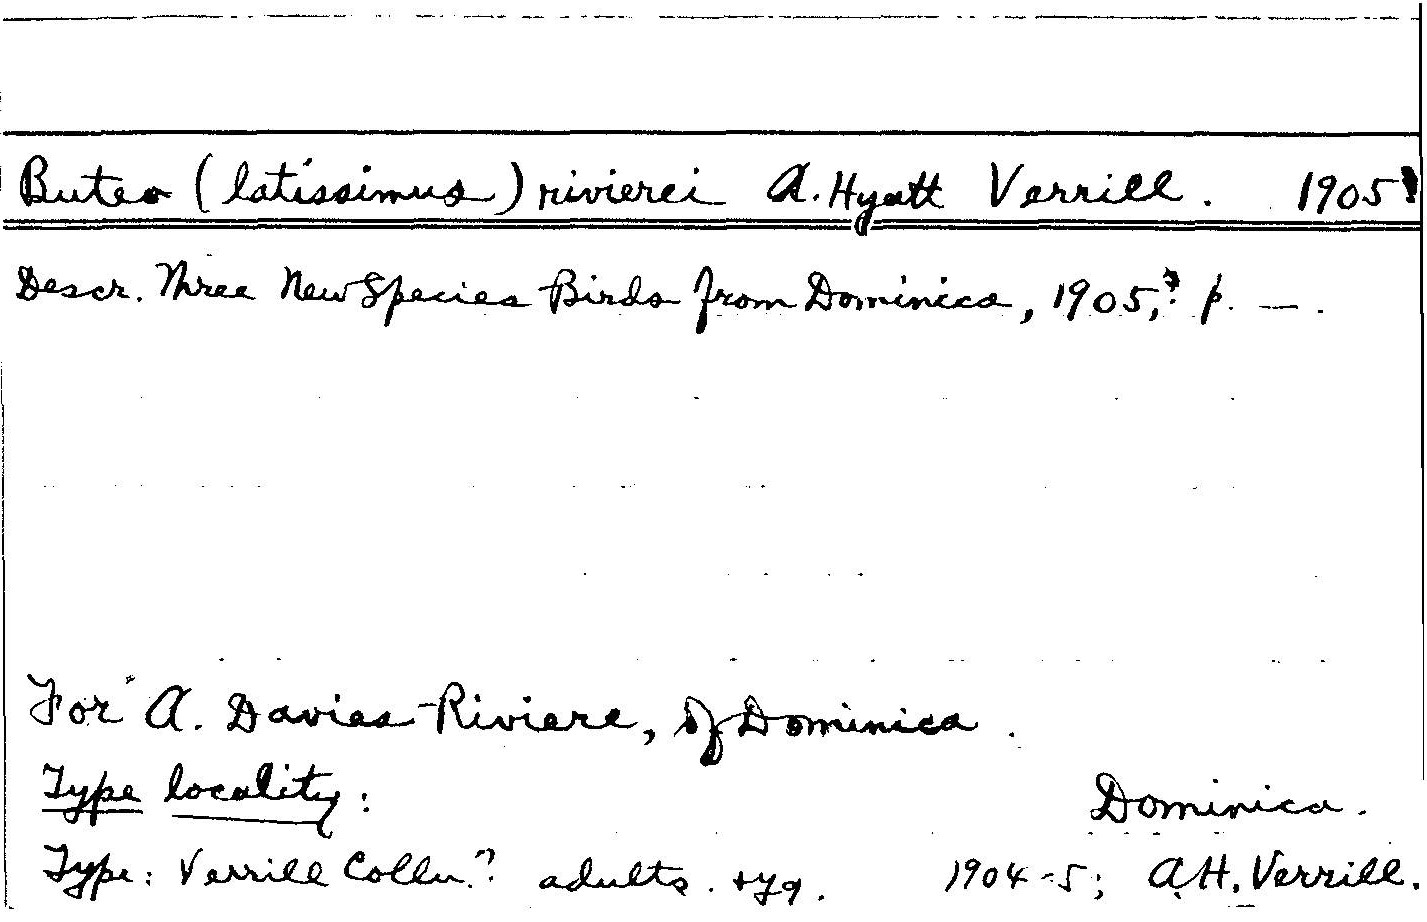 Buteo (latissimus) rivierei A. Hyatt Verrill. 1905?
Descr. Three New Species Birds from Dominica, 1905,? p. — .
For A. Davies Riviere, of Dominica.
Type locality: Dominica.
Type: Verrill Colln.? adults. + yg. 1904-5; A.H. Verrill.